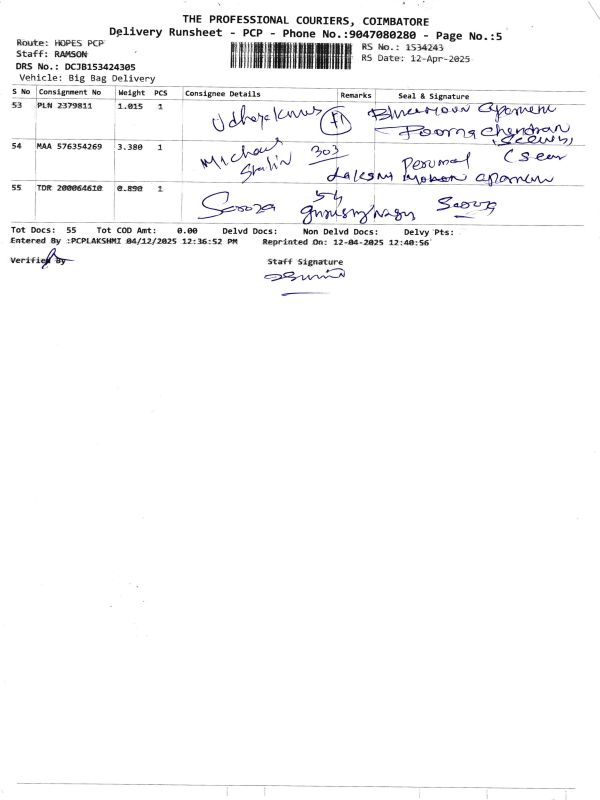 THE PROFESSIONAL COURIERS, COIMBATORE
Delivery Runsheet - PCP - Phone No.:9047080280 - Page No.:5
Route: HOPES PCP
Staff: RAMSON
DRS No.: DCJB153424305
Vehicle: Big Bag Delivery
RS No.: 1534243
RS Date: 12-Apr-2025
S No Consignment No Weight PCS Consignee Details Remarks Seal & Signature
53 PLN 2379811 1.015 1 Udhayakumar F1
Poorna chandran
54 MAA 576354269 3.380 1 Michael Stalin 303 Perumal
55 TDR 200064610 0.890 1 Saroja 54 Saroja
Tot Docs: 55 Tot COD Amt: 0.00 Delvd Docs: Non Delvd Docs: Delvy Pts:
Entered By :PCPLAKSHMI 04/12/2025 12:36:52 PM Reprinted On: 12-04-2025 12:40:56
Verified By Staff Signature